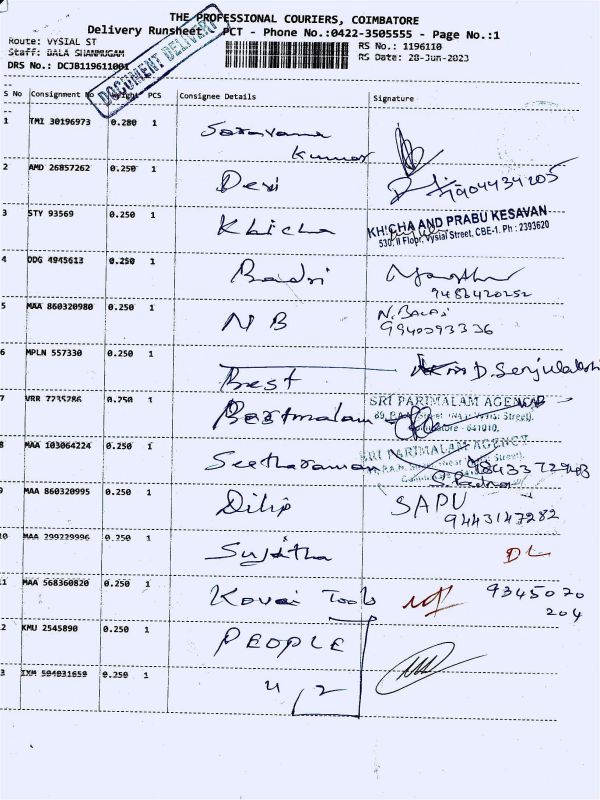 THE PROFESSIONAL COURIERS, COIMBATORE
Delivery Runsheet PCT - Phone No.:0422-3505555 - Page No.:1
Route: VYSIAL ST
RS No.: 1196110
Staff: BALA SHANMUGAM
RS Date: 28-Jun-2023
DRS No.: DCJB1196110001
DOCUMENT DELIVERY
S No Consignment No Weight PCS Consignee Details Signature
1 TMI 30196973 0.280 1 Saravana
Kumar
2 AMD 26857262 0.250 1 Devi 7904434205
3 STY 93569 0.250 1 Khicha KHICHA AND PRABU KESAVAN
530, II Floor, Vysial Street, CBE-1. Ph : 2393620
4 DDG 4945613 0.250 1 Badri
9486420252
5 MAA 860320980 0.250 1 N B N. Balaji
9940393336
6 MPLN 557330 0.250 1 Best
7 VRR 7235286 0.250 1 SRI PARIMALAM AGENCY
Vysial Street).
Coimbatore - 641010.
8 MAA 103064224 0.250 1 Seetharaman SRI PARIMALAM AGENCY
9 MAA 860320995 0.250 1 Dilip SAPU
9443147282
10 MAA 299229996 0.250 1 Sujitha DL
11 MAA 568360820 0.250 1 Kovai Tools 9345020
204
12 KMU 2545890 0.250 1 PEOPLE
13 IXM 504931659 0.250 1 4/2